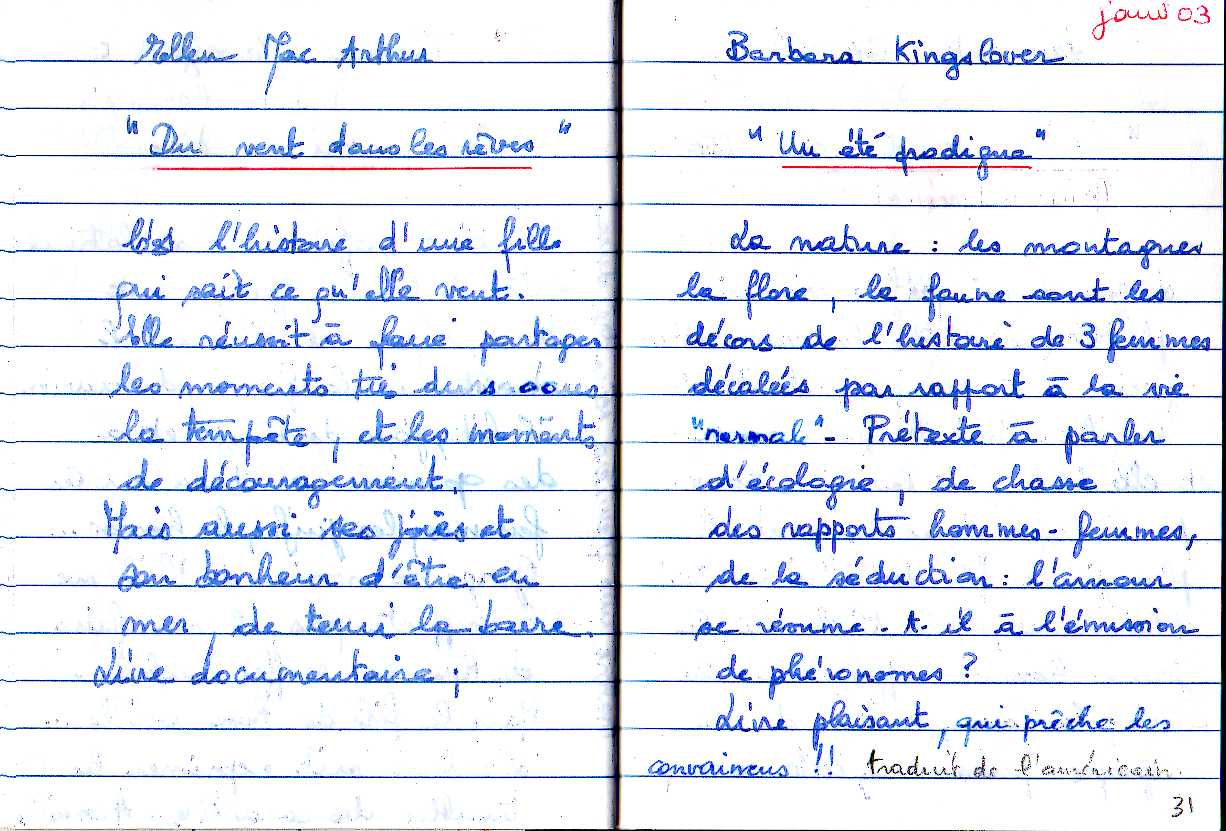 Ellen Mac Arthur
"Du vent dans les rêves"
C'es l'histoire d'une fille
qui sait ce qu'elle veut.
Elle réussit à faire partager
les moments très durs dans
la tempête, et les moments
de découragement.
Mais aussi ses joies et
son bonheur d'être en
mer, de tenir la barre.
Livre documentaire ;
janv 03
Barbara Kingslover
"Un été prodigue"
La nature : les montagnes
la flore, la faune sont les
décors de l'histoire de 3 femmes
décalées par rapport à la vie
"normale". Prétexte à parler
d'écologie, de chasse
des rapports hommes-femmes,
de la séduction : l'amour
se résume-t-il à l'émission
de phéronomes ?
Livre plaisant, qui prêche les
convaincus !! traduit de l'américain.
31